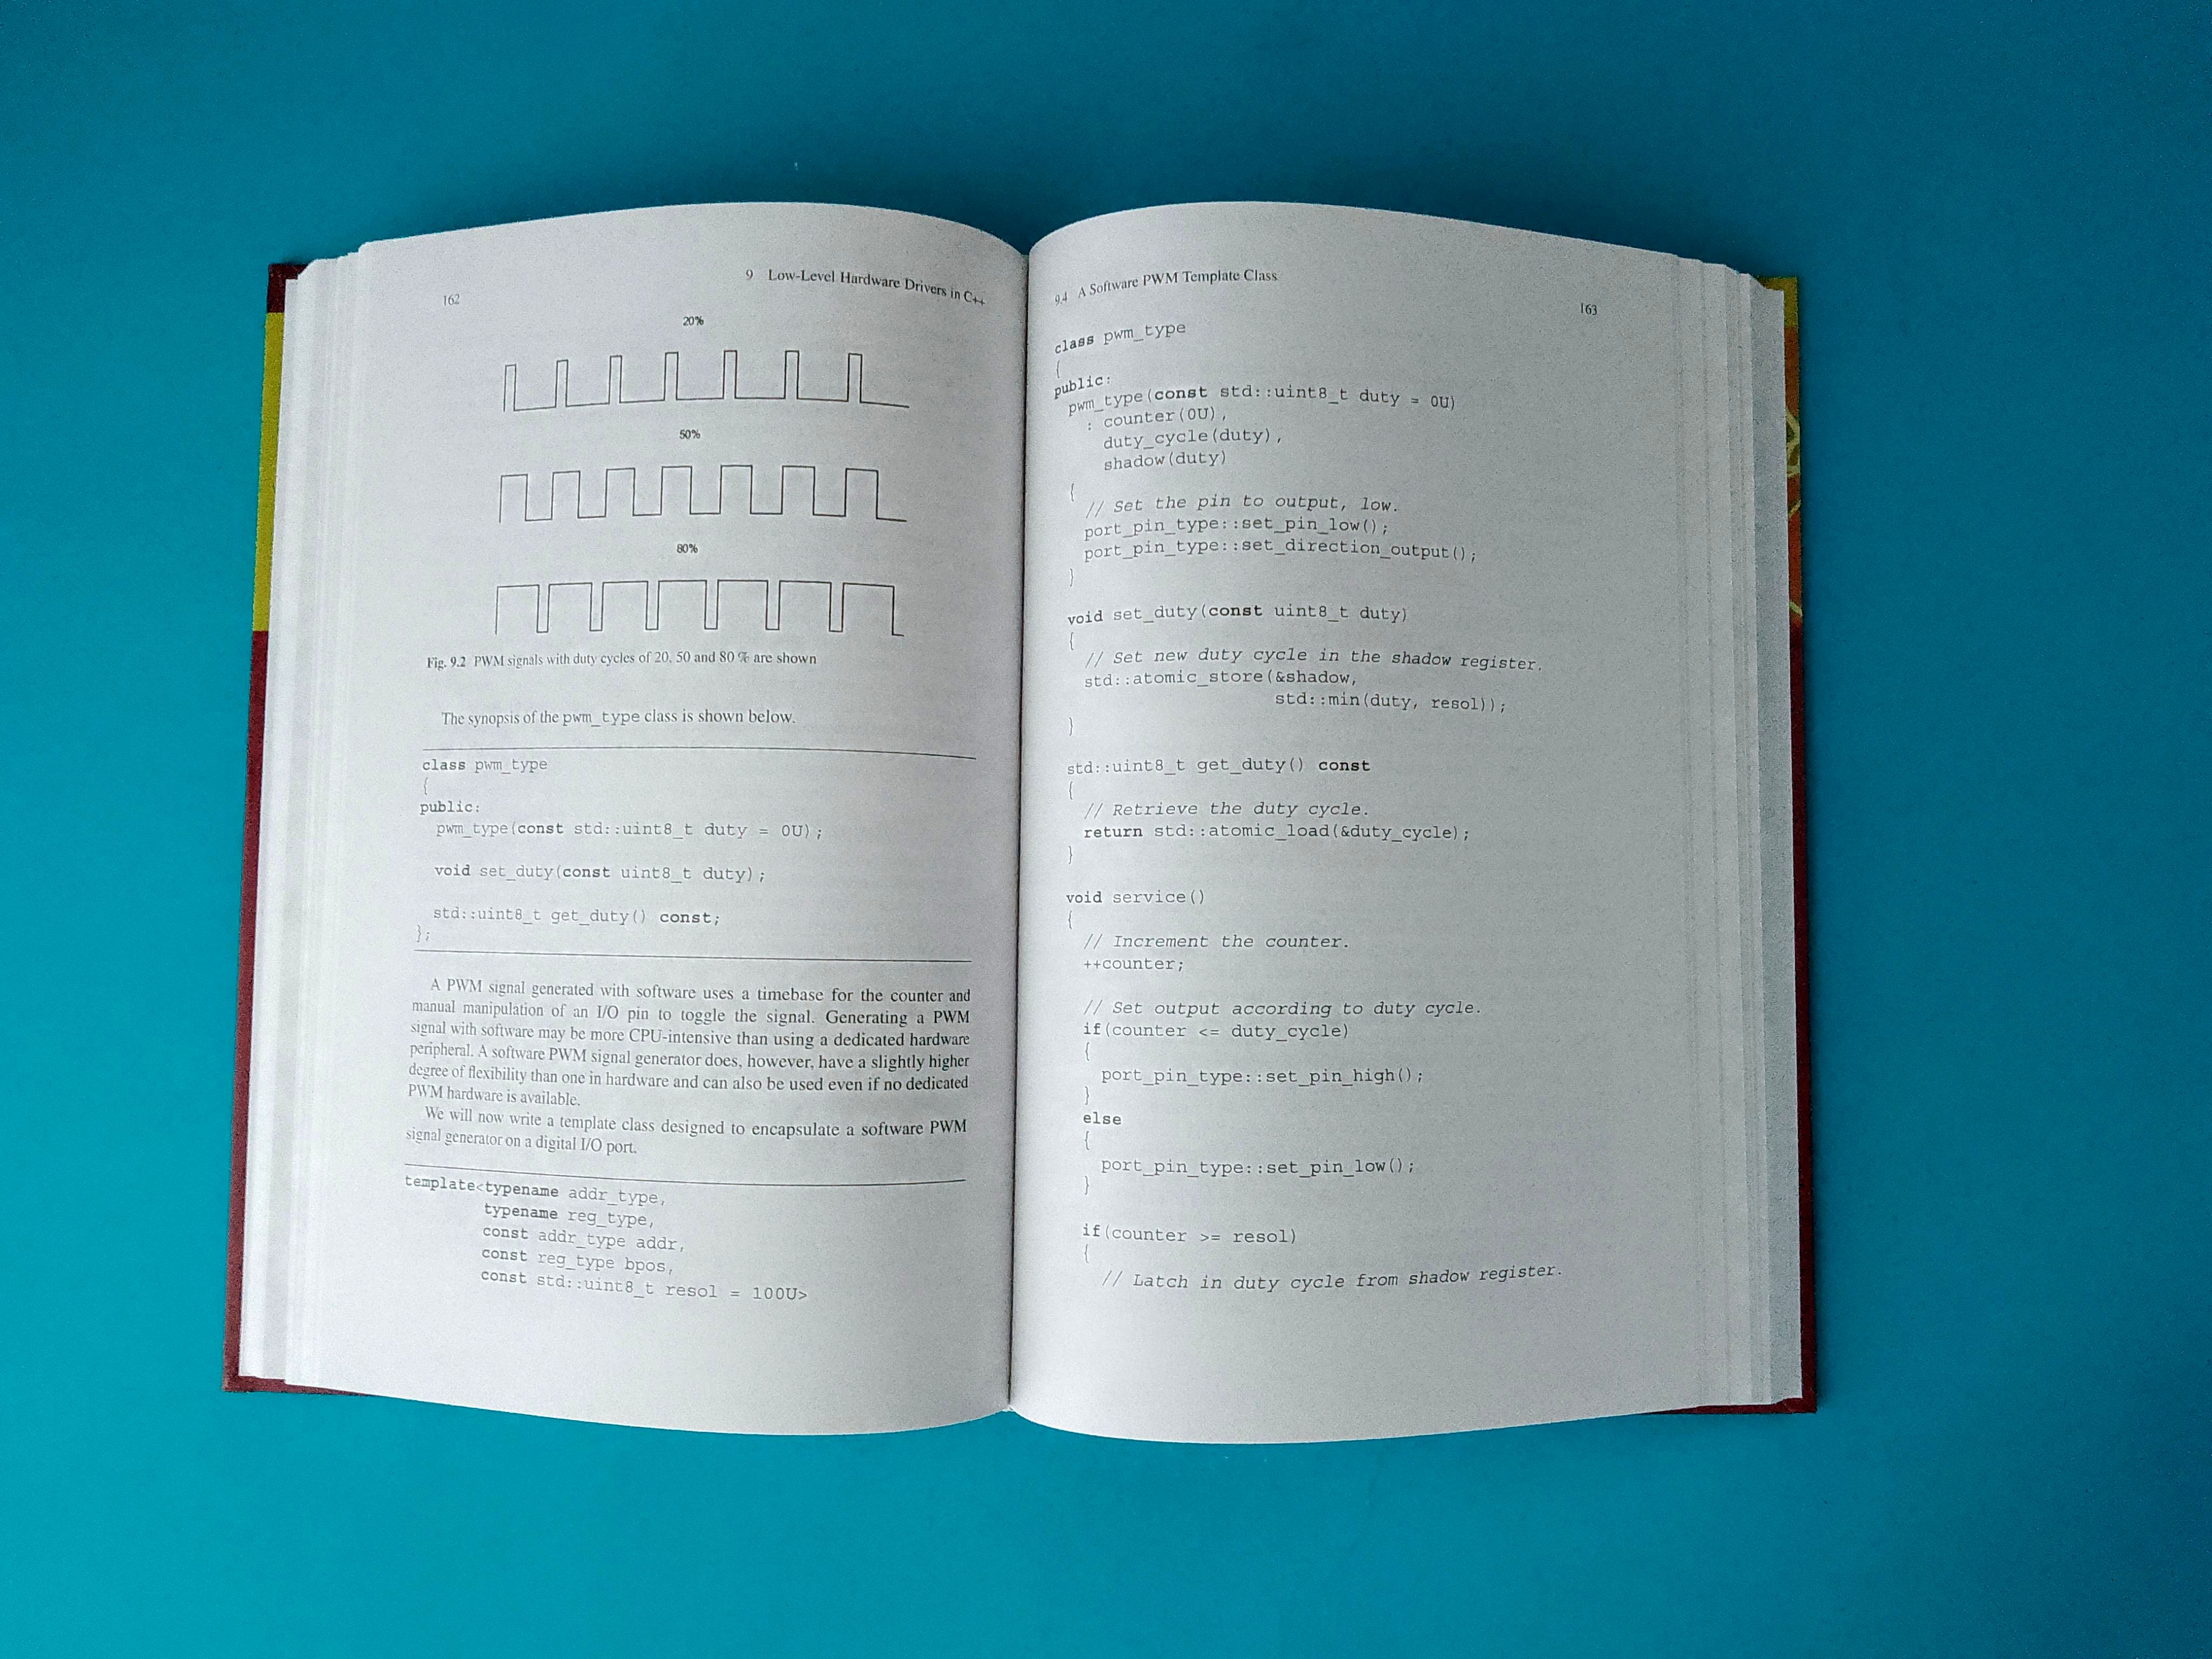 162
9 Low-Level Hardware Drivers in C++
20%
50%
80%
Fig. 9.2 PWM signals with duty cycles of 20, 50 and 80 % are shown
The synopsis of the pwm_type class is shown below.
class pwm_type
{
public:
pwm_type(const std::uint8_t duty = 0U);
void set_duty(const uint8_t duty);
std::uint8_t get_duty() const;
};
A PWM signal generated with software uses a timebase for the counter and
manual manipulation of an I/O pin to toggle the signal. Generating a PWM
signal with software may be more CPU-intensive than using a dedicated hardware
peripheral. A software PWM signal generator does, however, have a slightly higher
degree of flexibility than one in hardware and can also be used even if no dedicated
PWM hardware is available.
We will now write a template class designed to encapsulate a software PWM
signal generator on a digital I/O port.
template<typename addr_type,
typename reg_type,
const addr_type addr,
const reg_type bpos,
const std::uint8_t resol = 100U>
9.4 A Software PWM Template Class
163
class pwm_type
{
public:
pwm_type(const std::uint8_t duty = 0U)
: counter(0U),
duty_cycle(duty),
shadow(duty)
{
// Set the pin to output, low.
port_pin_type::set_pin_low();
port_pin_type::set_direction_output();
}
void set_duty(const uint8_t duty)
{
// Set new duty cycle in the shadow register.
std::atomic_store(&shadow,
std::min(duty, resol));
}
std::uint8_t get_duty() const
{
// Retrieve the duty cycle.
return std::atomic_load(&duty_cycle);
}
void service()
{
// Increment the counter.
++counter;
// Set output according to duty cycle.
if(counter <= duty_cycle)
{
port_pin_type::set_pin_high();
}
else
{
port_pin_type::set_pin_low();
}
if(counter >= resol)
{
// Latch in duty cycle from shadow register.